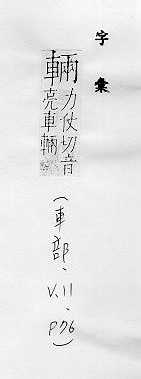 字彙
輛
力仗切音
亮車輛
(車部、V.11、P76)